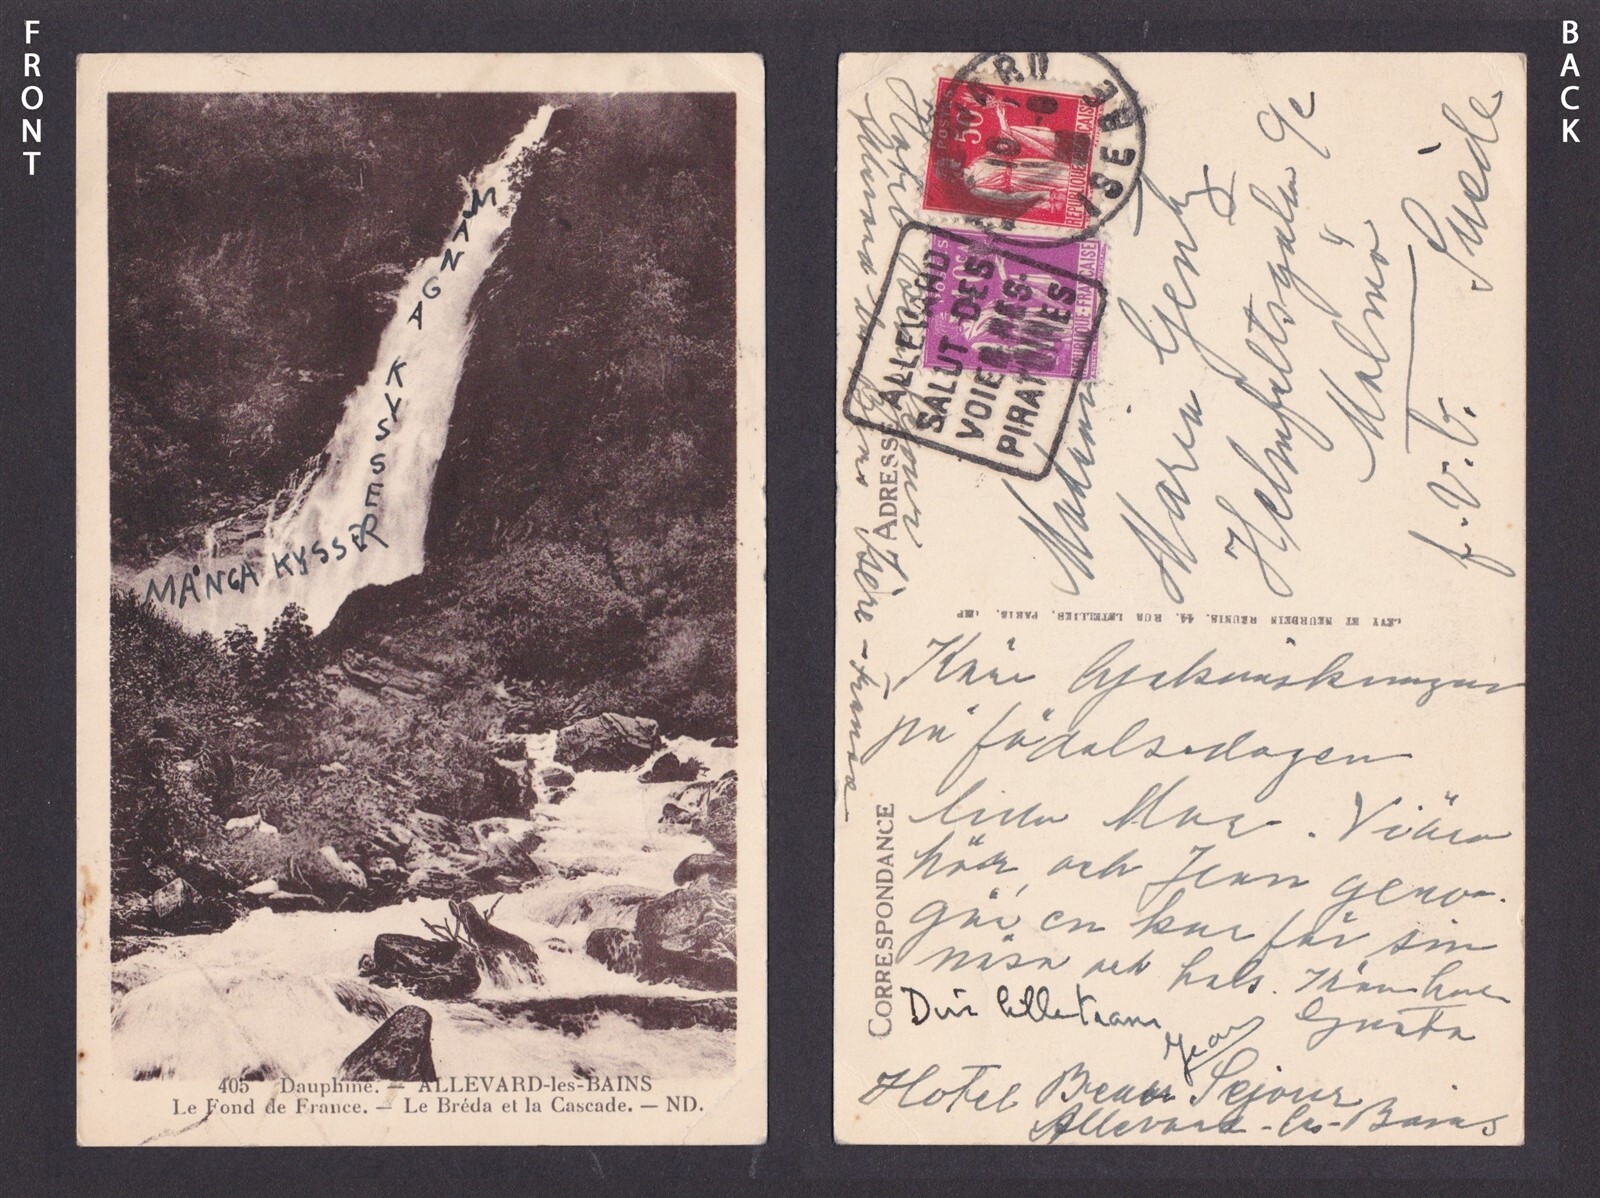 FRONT
BACK
MÅNGA KYSSER
MÅNGA KYSSER
405 Dauphiné. — ALLEVARD-les-BAINS
Le Fond de France. — Le Bréda et la Cascade. — ND.
POSTES
50c
REPUBLIQUE FRANÇAISE
ISERE
10
REPUBLIQUE FRANÇAISE
ALLEVARD
SALUT DES
VOIES RES-
PIRATOIRES
ADRESSE
Hotel Beau Sejour
Allevard les Bains Isère - France
Madame
Maren
Helmfeltsgatan 9c
Malmö
Suède
LEVY ET NEURDEIN REUNIS, 44, RUE LETELLIER, PARIS. IMP
CORRESPONDANCE
Kära lyckönskningar
på födelsedagen
lilla Mae. Vi äro
här och Jean geno-
går en kur för sin
näsa och hals.
Din lilla
Jean
Gusta
Hotel Beau Sejour
Allevard-les-Bains